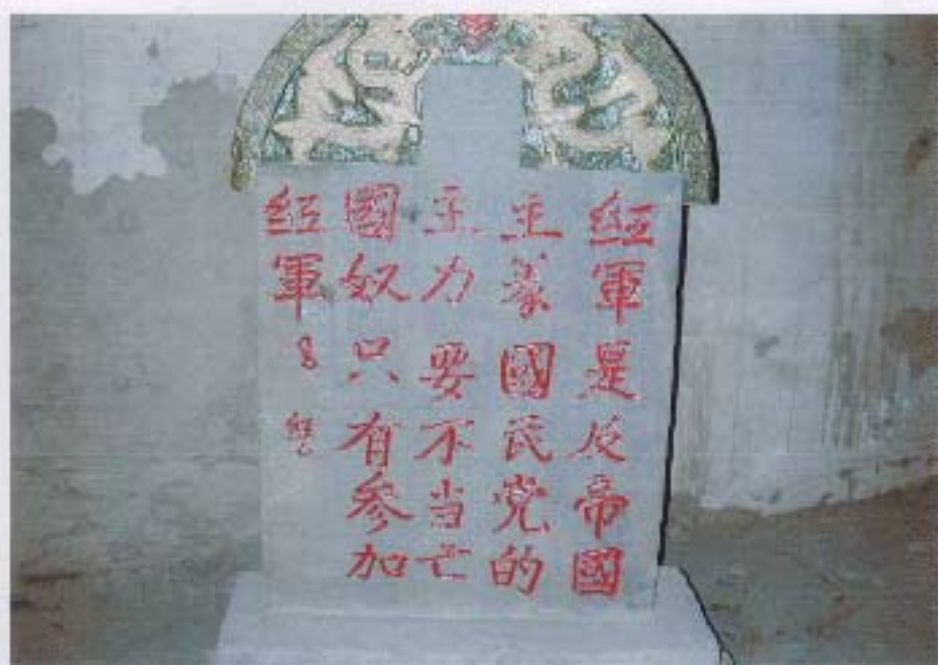 紅軍是反帝國
主義國民党的
主力要不当亡
國奴只有参加
紅軍